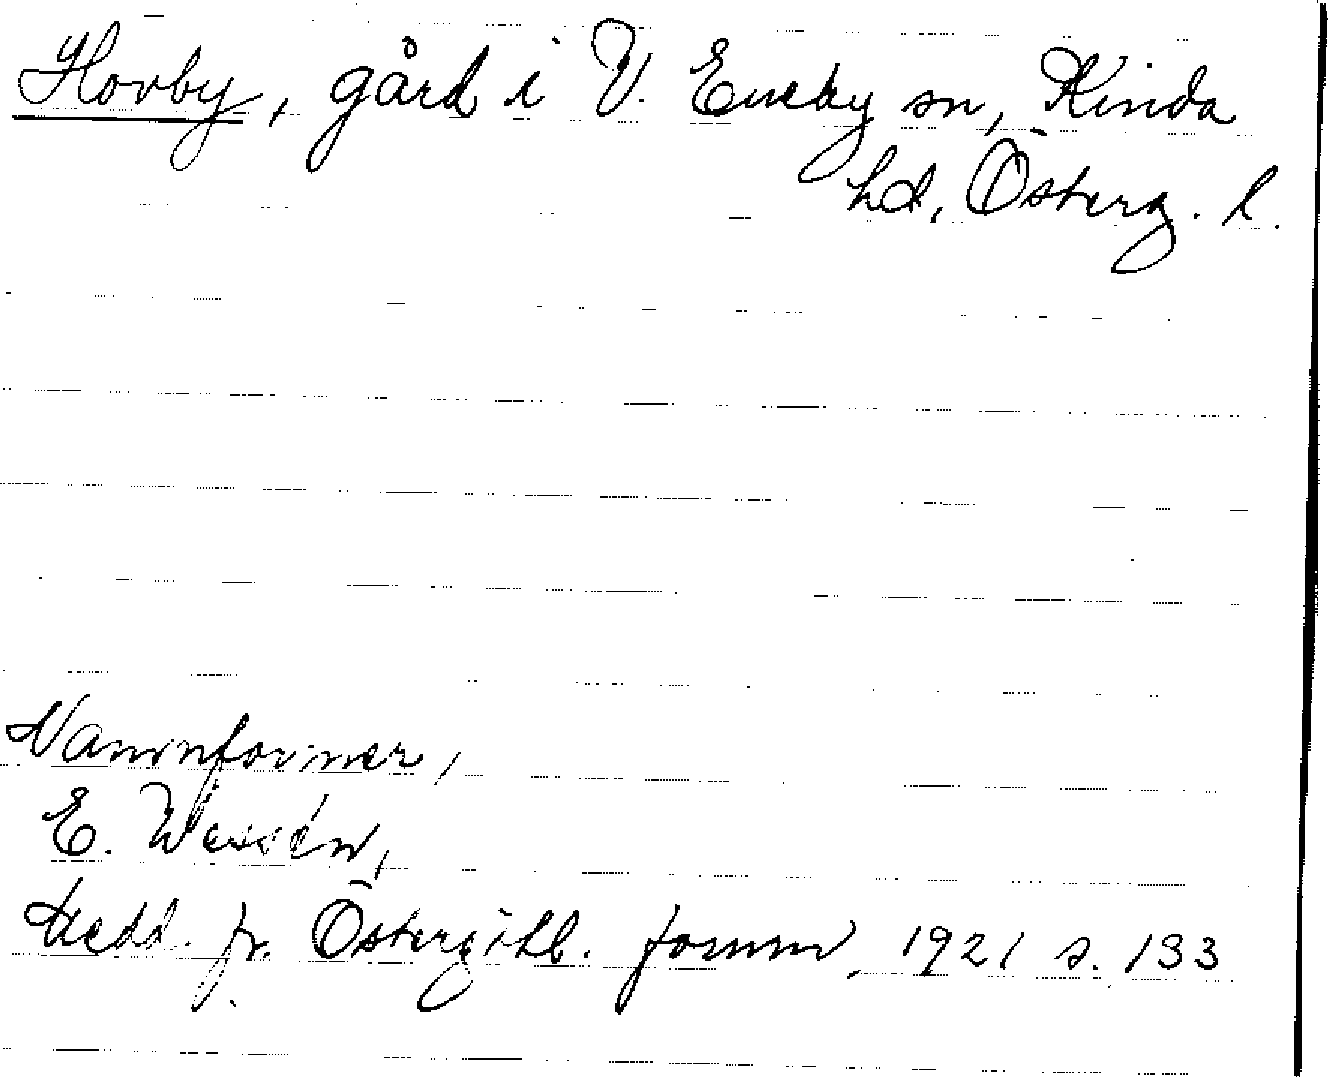 Hovby, gård i V. Eneby sn, Kinda
hd, Österg. l.
Namnformer,
E. Wessén,
Medd. fr. Östergötl. fornm, 1921 s. 133